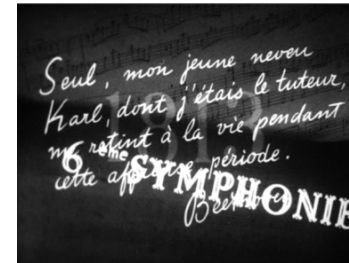 Seul, mon jeune neveu
Karl, dont j'étais le tuteur,
me retint à la vie pendant
cette affreuse période.
Beethoven
1813
6ème SYMPHONIE